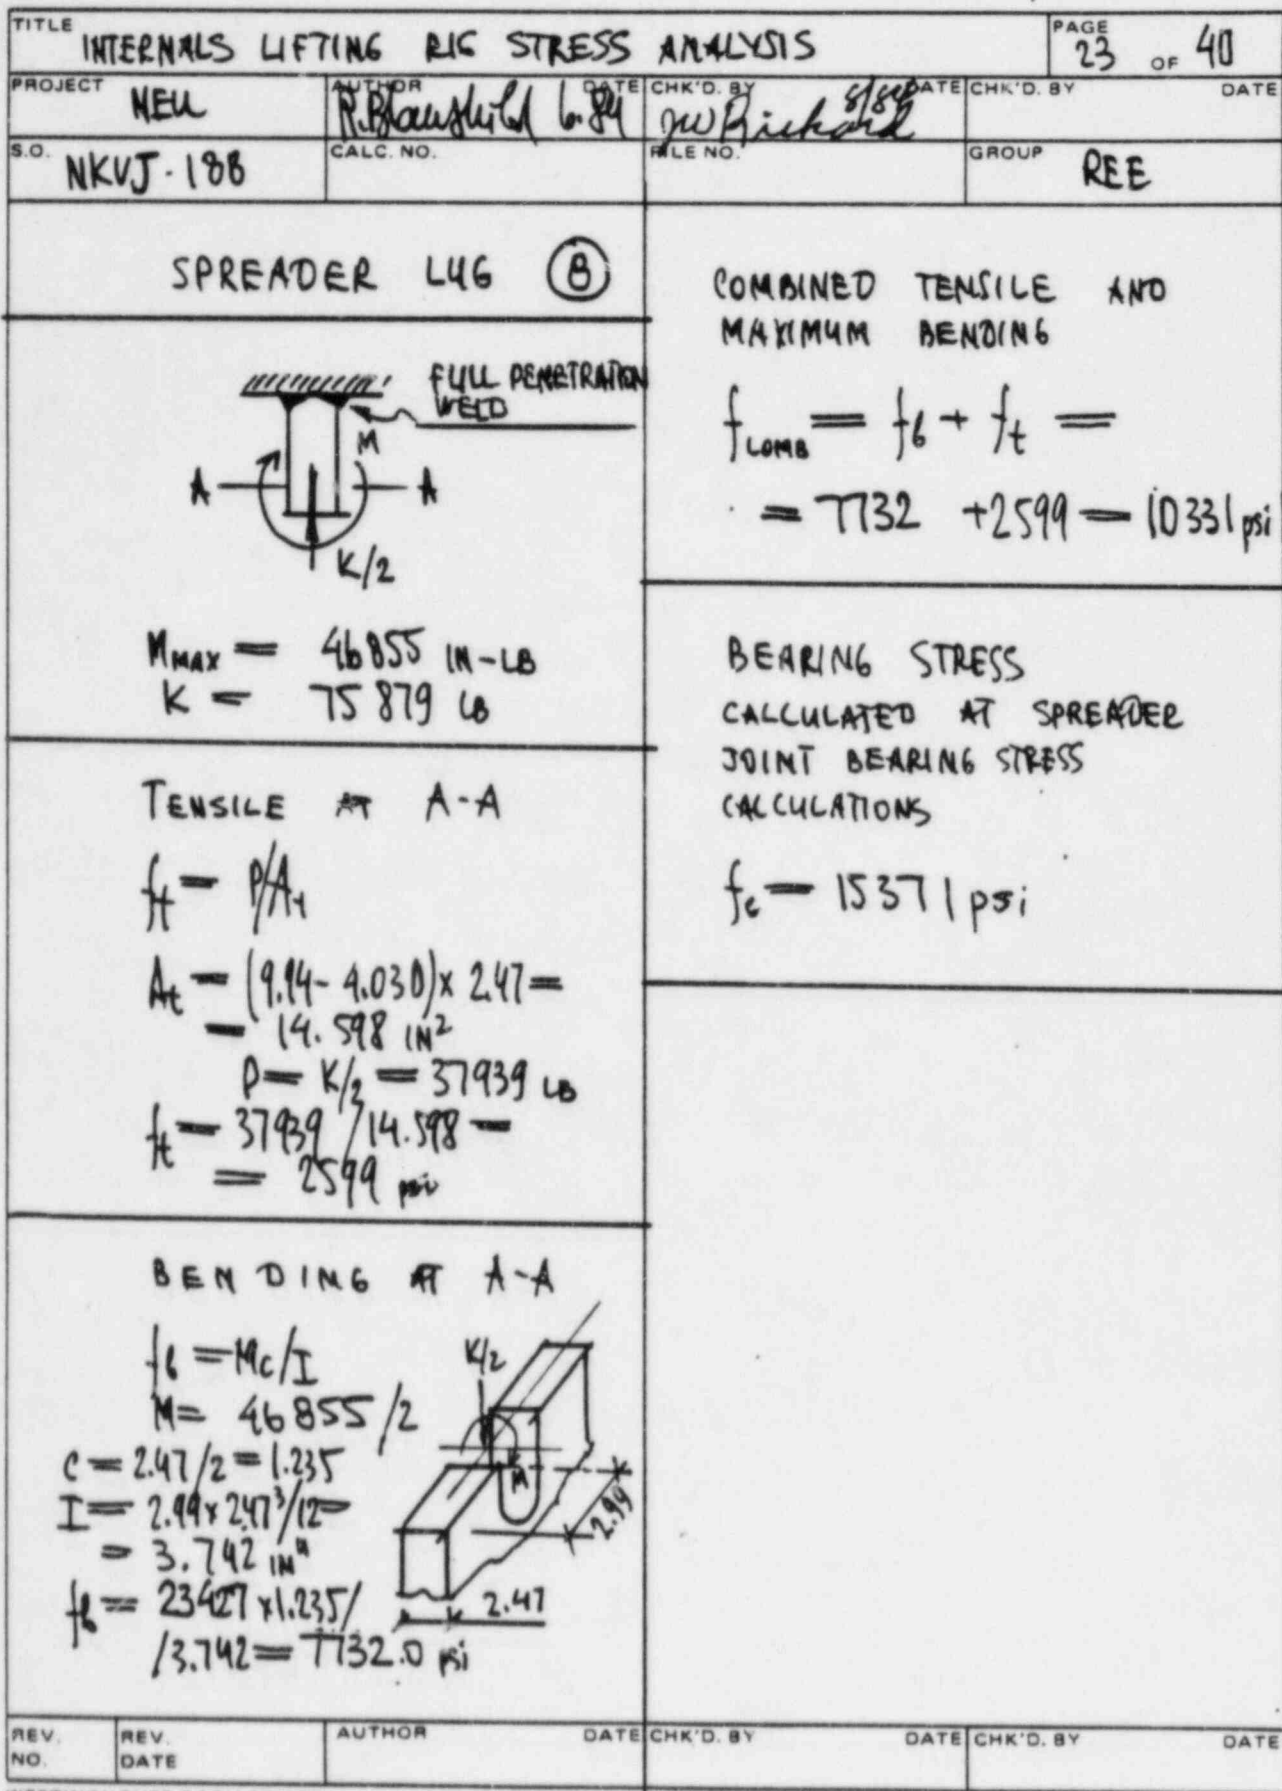 TITLE
INTERNALS LIFTING RIG STRESS ANALYSIS
PAGE
23 OF 40
PROJECT
NEU
AUTHOR DATE
6.84
CHK'D. BY DATE
CHK'D. BY DATE
S.O.
NKVJ-188
CALC. NO.
FILE NO.
GROUP
REE
SPREADER LUG 8
FULL PENETRATION
WELD
M
A A
K/2
M MAX = 46855 IN-LB
K = 75879 LB
TENSILE AT A-A
ft = P/At
At = (9.94-4.030)x 2.47=
= 14.598 IN²
P = K/2 = 37939 LB
ft = 37939/14.598 =
= 2599 psi
BENDING AT A-A
fb = Mc/I
M= 46855/2
C = 2.47/2 = 1.235
I = 2.99x2.47³/12=
= 3.742 IN⁴
fb = 23427x1.235/
/3.742 = 7732.0 psi
K/2
M
2.99
2.47
COMBINED TENSILE AND
MAXIMUM BENDING
f COMB = fb + ft =
= 7732 +2599 = 10331 psi
BEARING STRESS
CALCULATED AT SPREADER
JOINT BEARING STRESS
CALCULATIONS
fc = 15371 psi
REV. NO.
REV. DATE
AUTHOR DATE
CHK'D. BY DATE
CHK'D. BY DATE